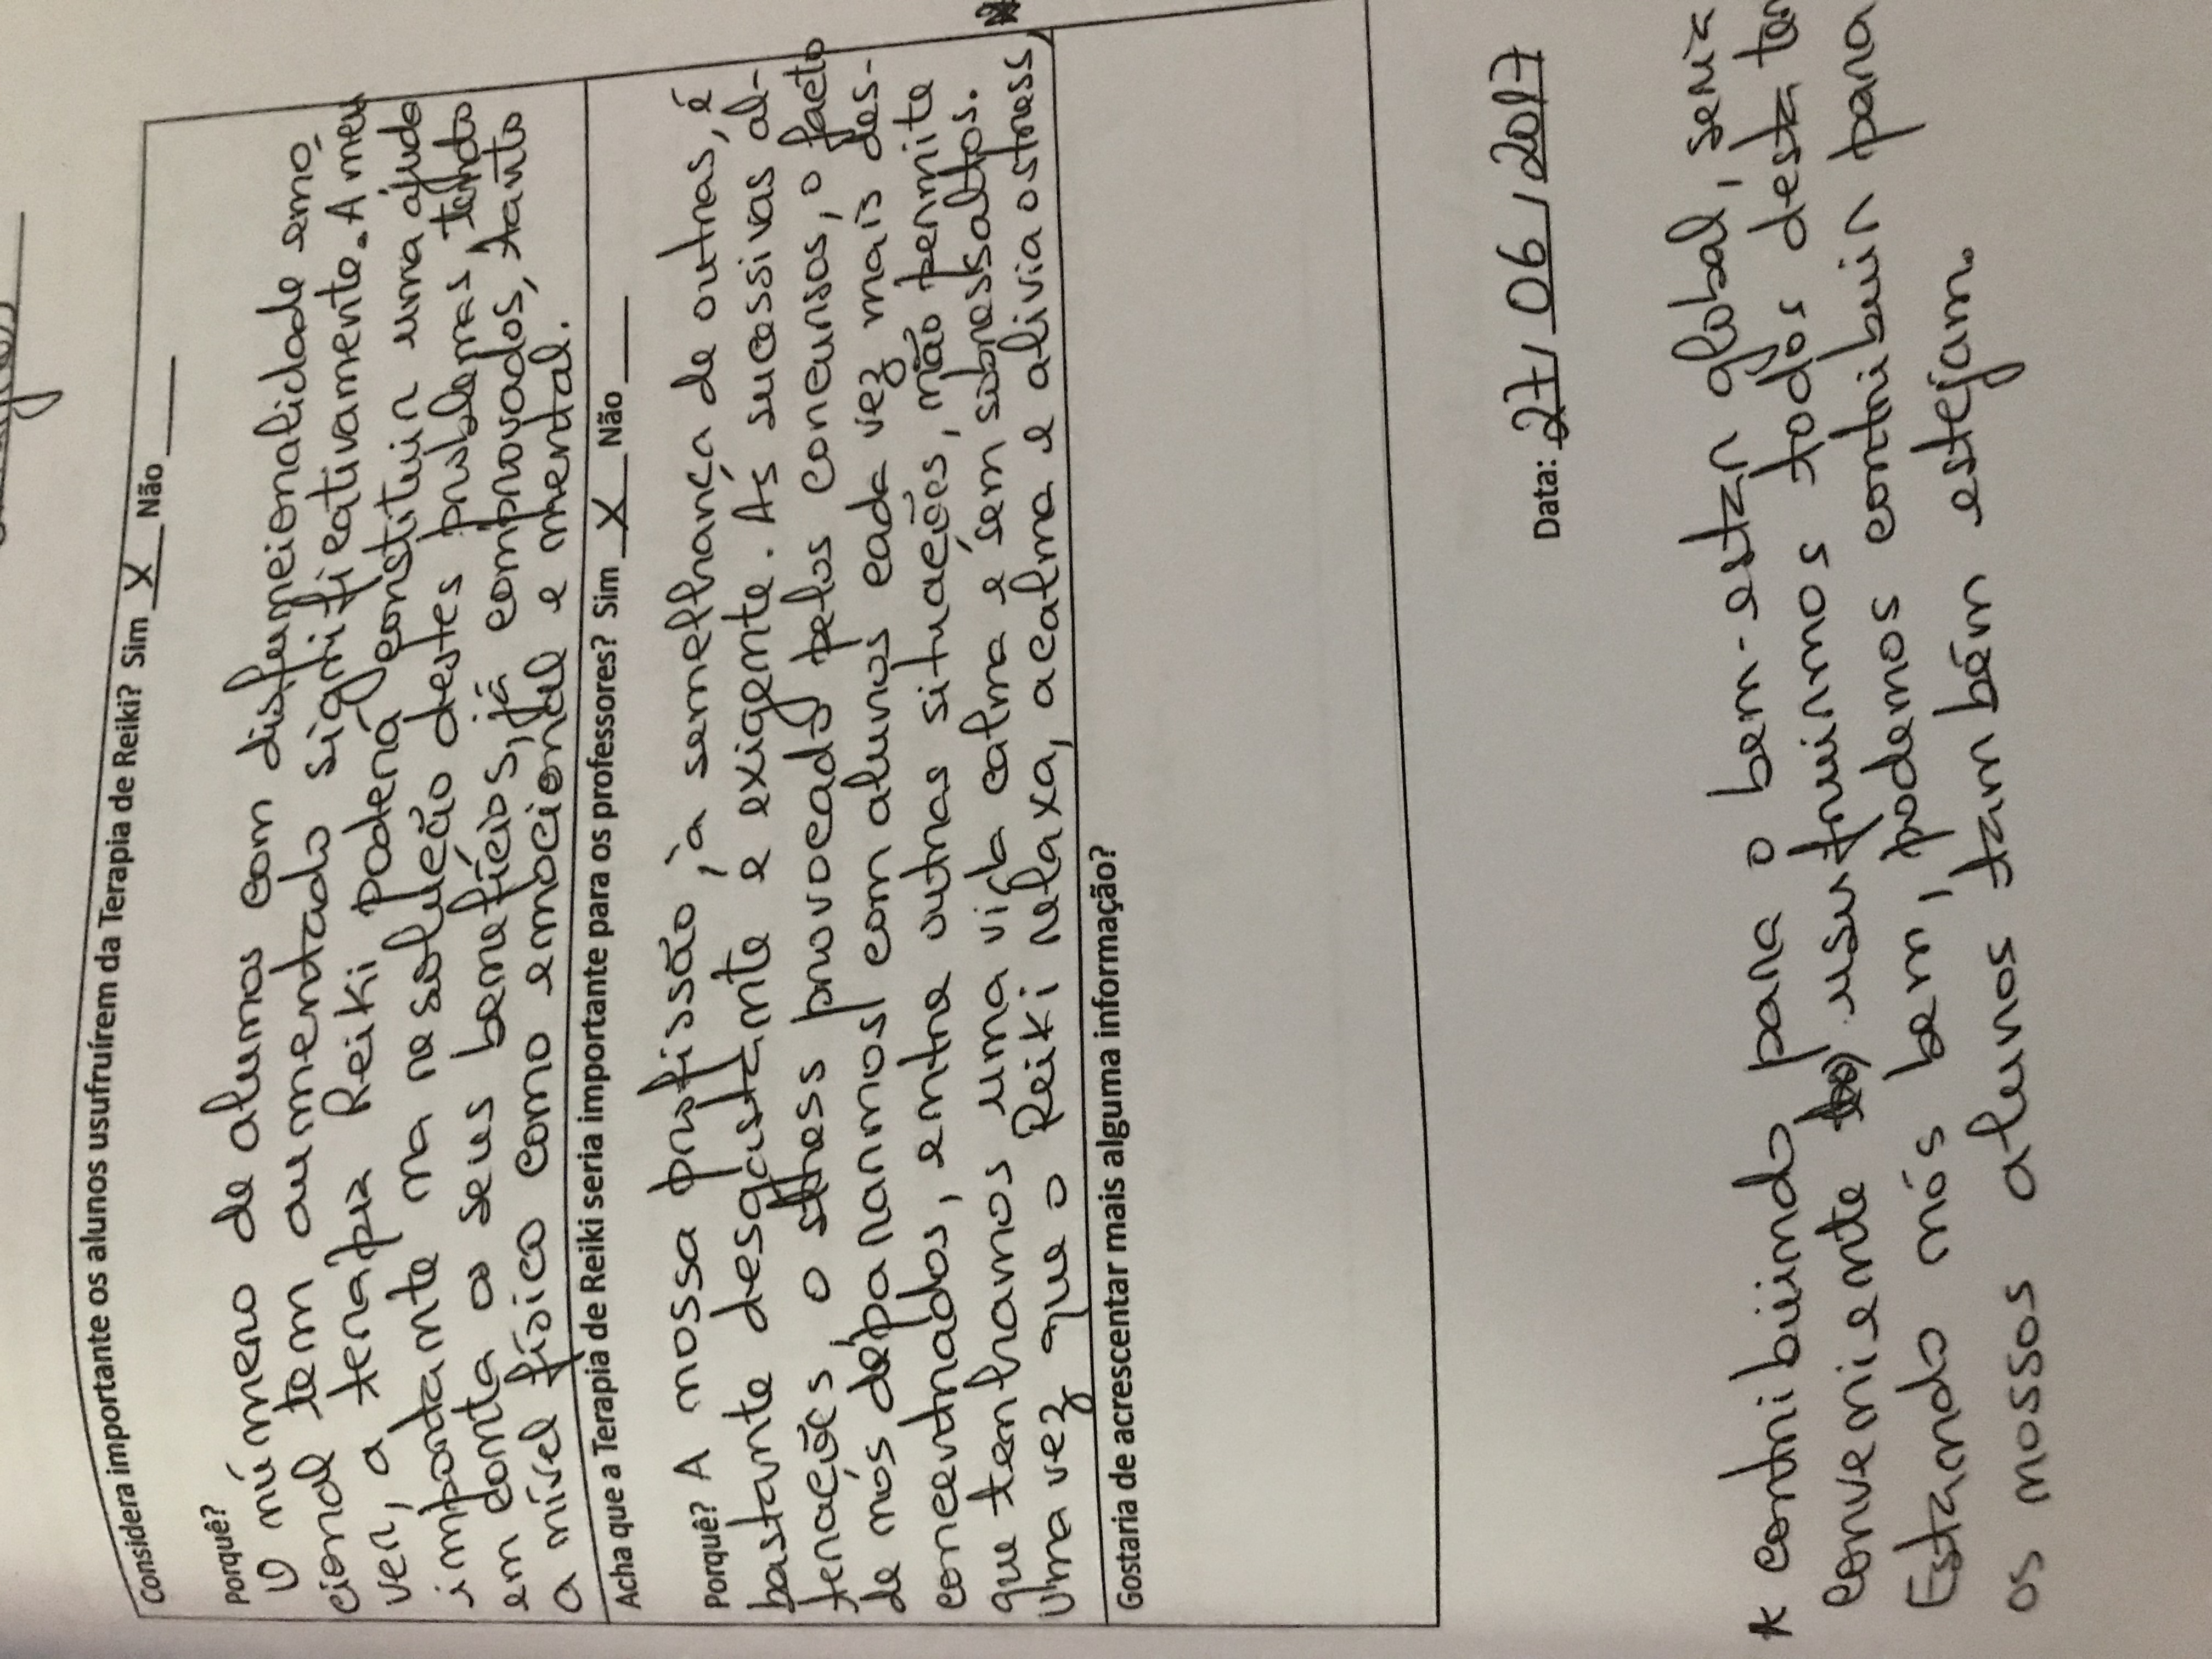 Considera importante os alunos usufruírem da Terapia de Reiki? Sim X Não
Porquê?
O número de alunos com disfuncionalidade emo-
cional tem aumentado significativamente. A meu
ver, a terapia Reiki poderá constituir uma ajuda
importante na resolução destes problemas, tendo
em conta os seus benefícios, já comprovados, tanto
a nível físico como emocional e mental.
Acha que a Terapia de Reiki seria importante para os professores? Sim X Não
Porquê? A nossa profissão, à semelhança de outras, é
bastante desgastante e exigente. As sucessivas al-
terações, o stress provocado pelos concursos, o facto
de nós depararmos com alunos cada vez mais des-
concentrados, entre outras situações, não permite
que tenhamos uma vida calma e sem sobressaltos.
Uma vez que o Reiki relaxa, acalma e alivia o stress,
Gostaria de acrescentar mais alguma informação?
Data: 27/06/2017
* contribuindo para o bem-estar global, seria
conveniente usufruirmos todos desta
Estando nós bem, podemos contribuir para
os nossos alunos também estejam.